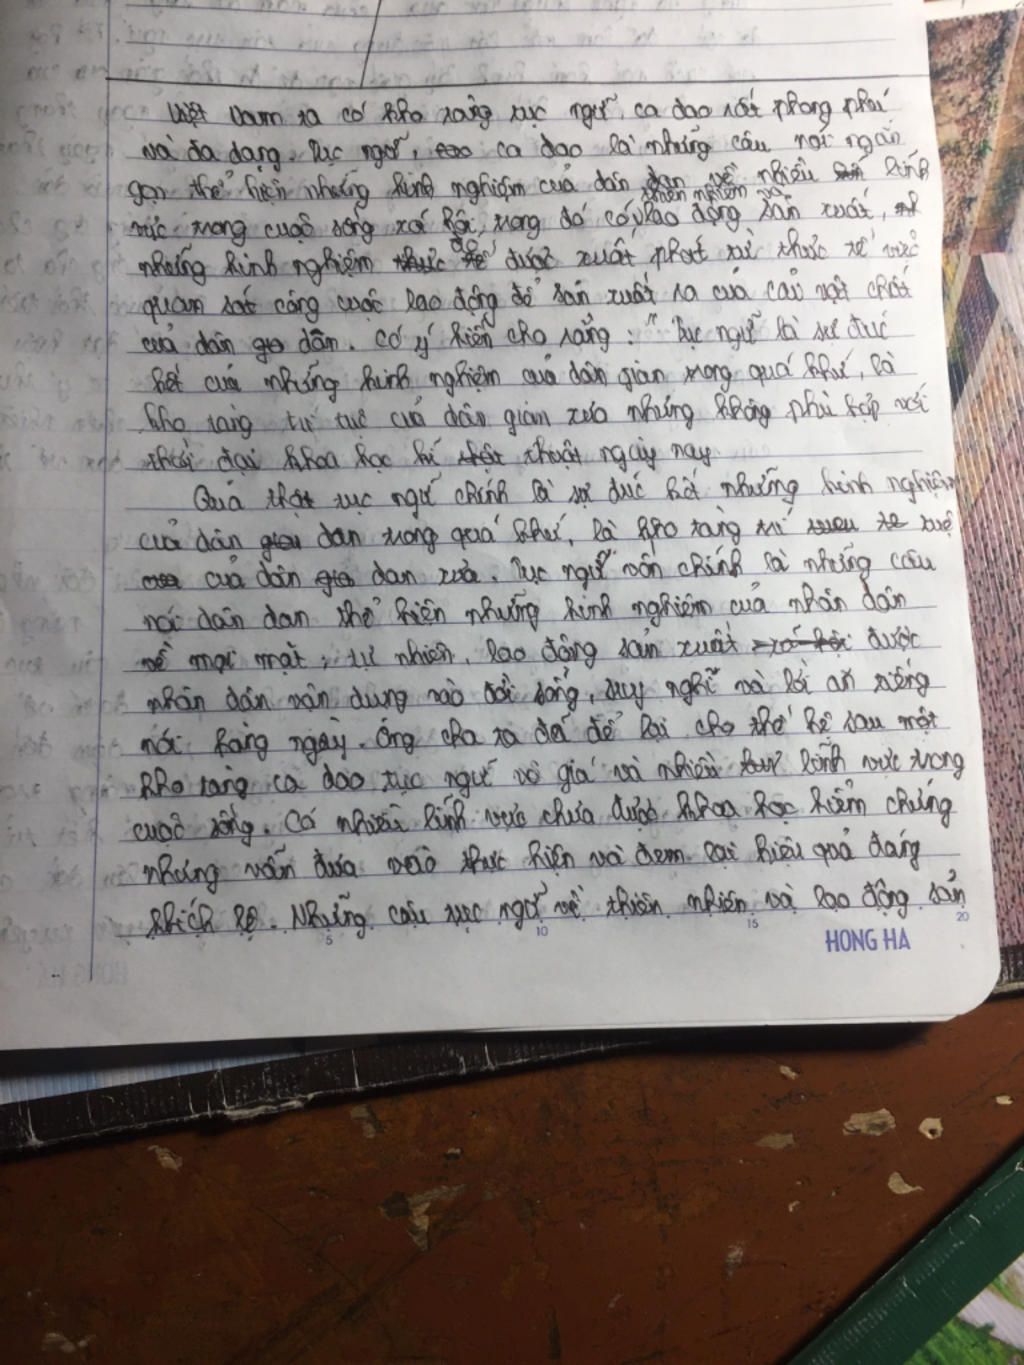 Việt Nam ta có kho tàng tục ngữ, ca dao rất phong phú
và đa dạng. Tục ngữ, ca dao là những câu nói ngắn
gọn thể hiện những kinh nghiệm của dân gian về nhiều lĩnh
vực trong cuộc sống xã hội, trong đó có thiên nhiên và lao động sản xuất,
những kinh nghiệm đó được xuất phát từ thực tế việc
quan sát công cuộc lao động để sản xuất ra của cải vật chất
của dân dân. Có ý kiến cho rằng: "Tục ngữ là sự đúc
kết của những kinh nghiệm của dân gian trong quá khứ, là
kho tàng tri tuệ của dân gian xưa nhưng không phù hợp với
thời đại khoa học kĩ thuật ngày nay.
Quả thật tục ngữ chính là sự đúc kết những kinh nghiệm
của dân dan trong quá khứ, là kho tàng trí tuệ
của dân dan xưa. Tục ngữ vốn chính là những câu
nói dân dan thể hiện những kinh nghiệm của nhân dân
về mọi mặt, tự nhiên, lao động sản xuất được
nhân dân vận dụng vào đời sống, suy nghĩ và lời ăn tiếng
nói hàng ngày. Ông cha ta đã để lại cho thế hệ sau một
kho tàng ca dao tục ngữ vô giá và nhiều lĩnh vực trong
cuộc sống. Có nhiều lĩnh vực chưa được khoa học kiểm chứng
nhưng vẫn đưa vào thực hiện và đem lại hiệu quả đáng
khích lệ. Những câu tục ngữ về thiên nhiên và lao động sản
5 10 15 20
HONG HA